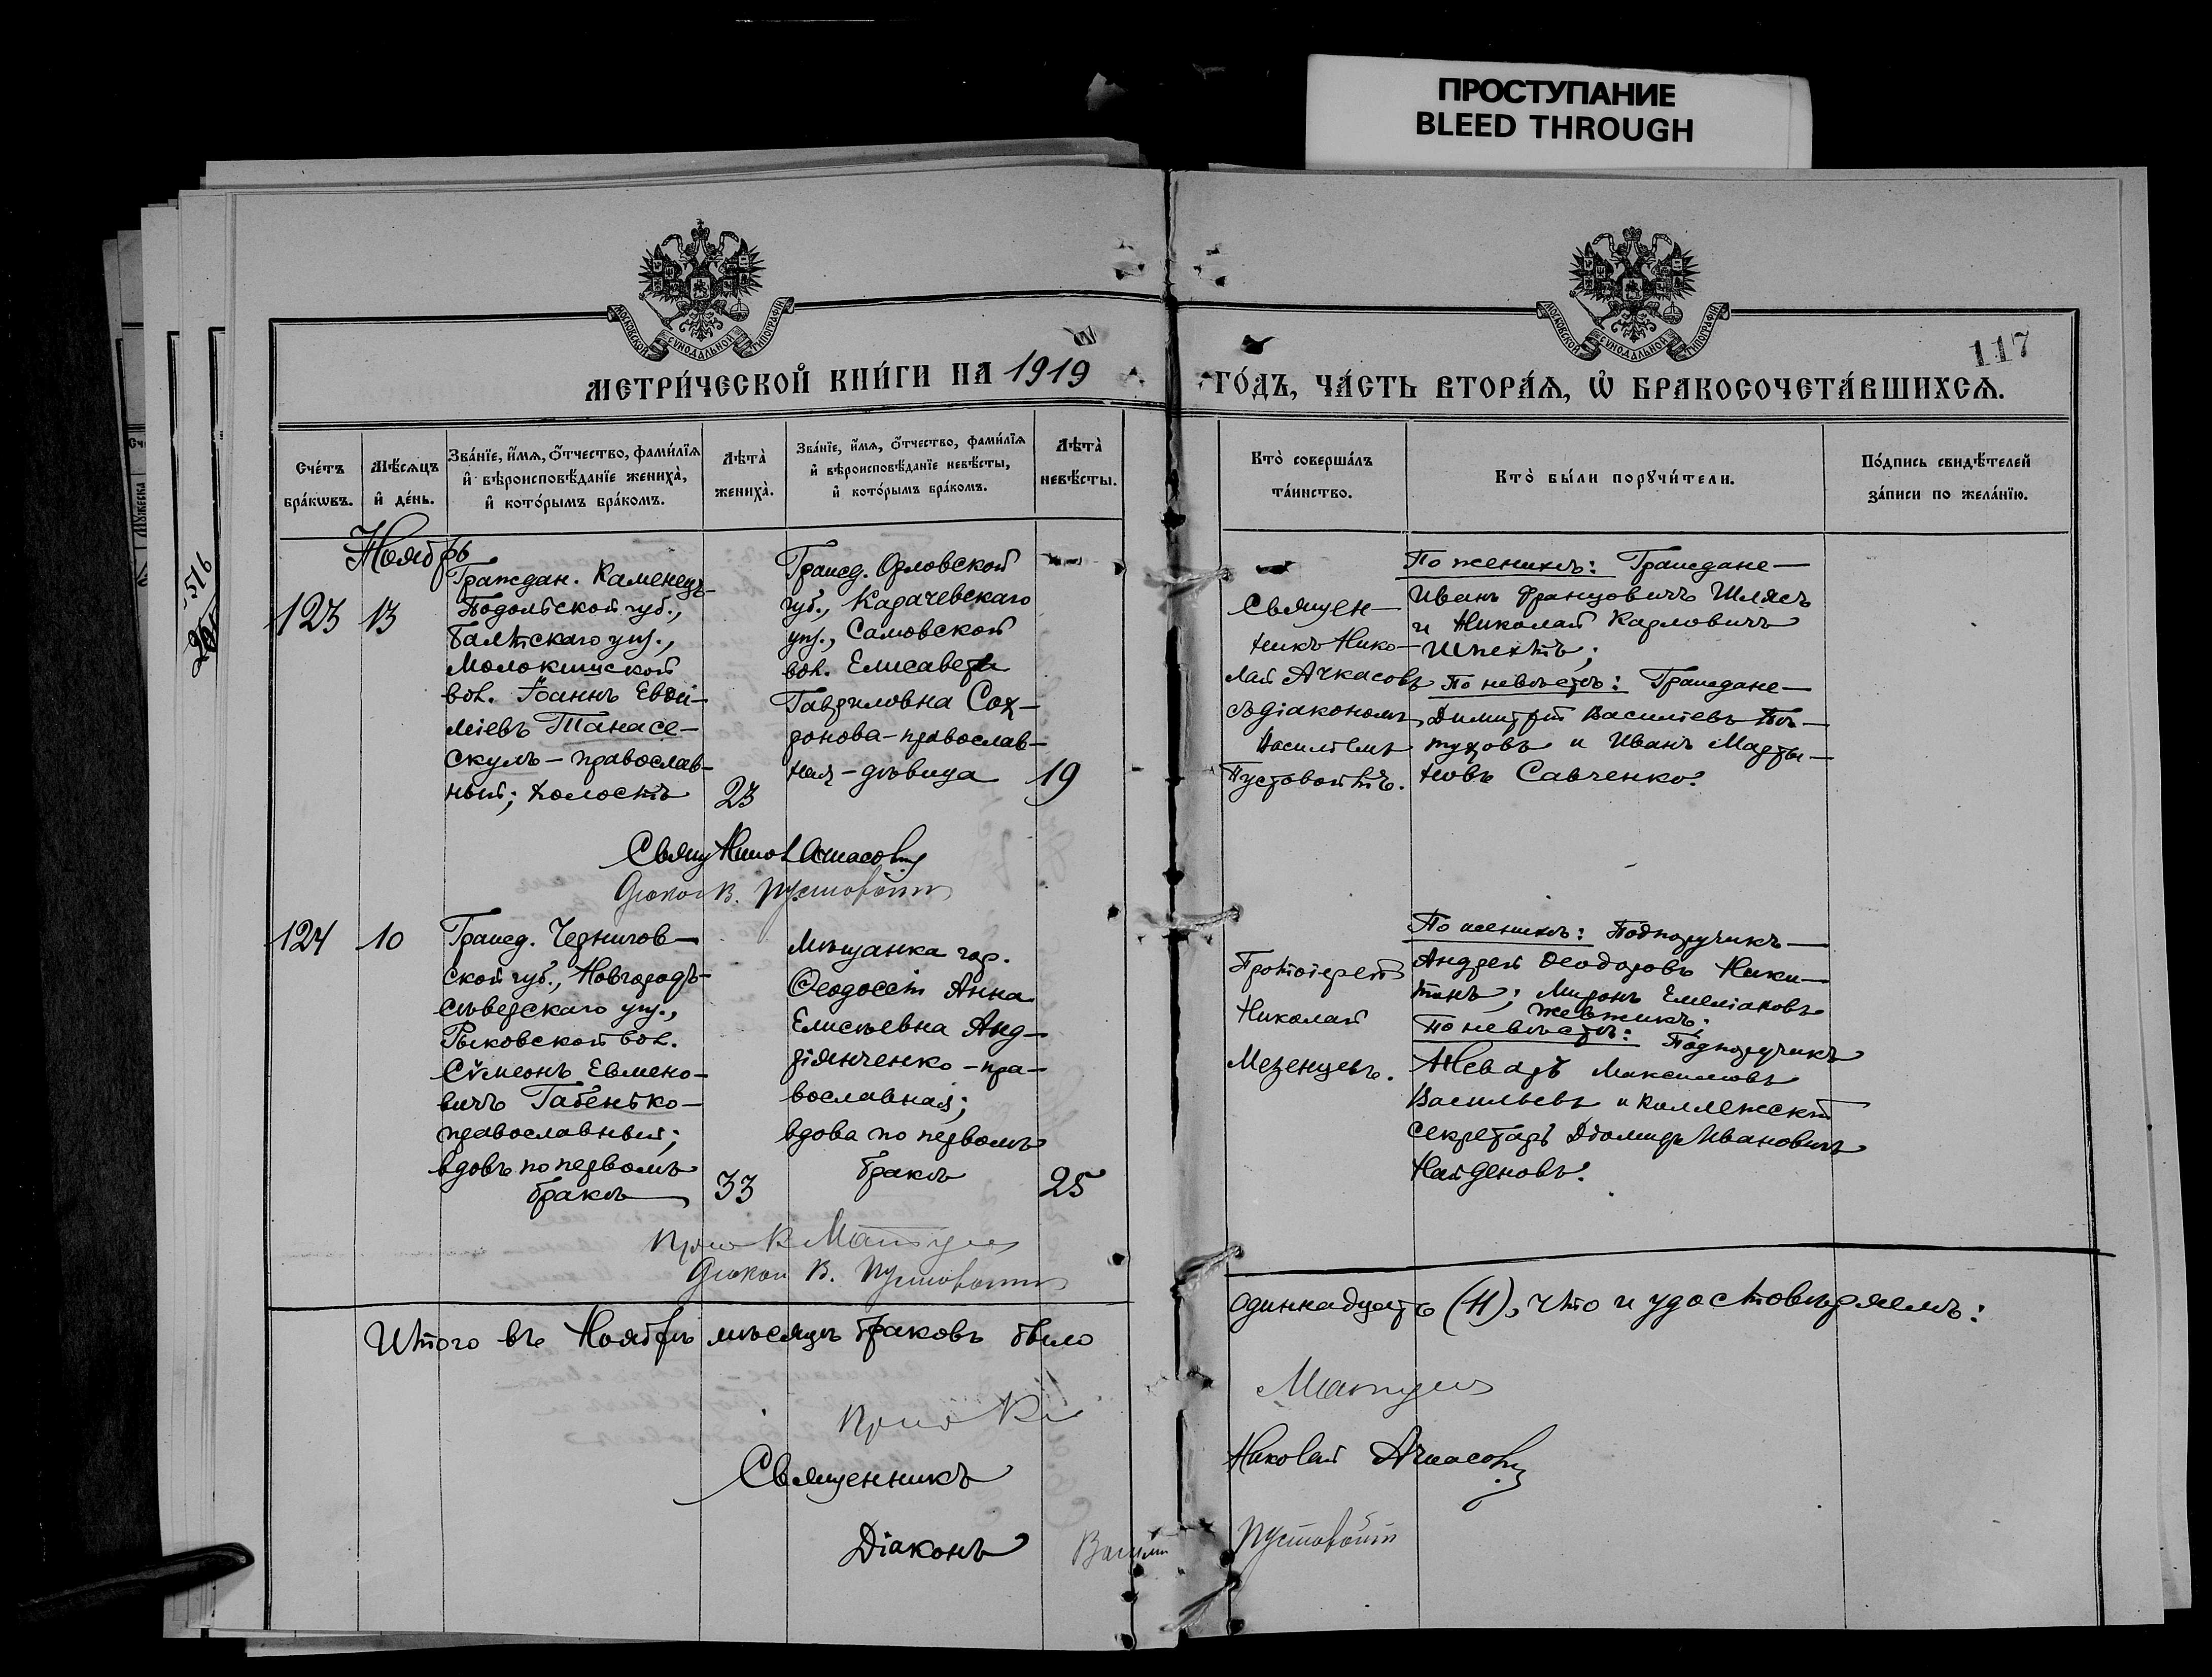 ПРОСТУПАНИЕ
BLEED THROUGH
117
516
МОСКОВСКОЙ СѴНОДАЛЬНОЙ ТИПОГРАФІИ
МОСКОВСКОЙ СѴНОДАЛЬНОЙ ТИПОГРАФІИ
МЕТРИ́ЧЕСКОЙ КНИ́ГИ НА 1919
ГО́ДЪ, ЧА́СТЬ ВТОРА́Я, Ѡ БРАКОСОЧЕТА́ВШИХСЯ.
Сче́тъ
бра́кѡвъ.
Мѣ́сяцъ
и де́нь.
Зва́нїе, и́мя, о́тчество, фами́лїя
и вѣроисповѣ́данїе жениха̀,
и кото́рымъ бра́комъ.
Лѣта̀
жениха̀.
Зва́нїе, и́мя, о́тчество, фами́лїя
и вѣроисповѣ́данїе невѣ́сты,
и кото́рымъ бра́комъ.
Лѣта̀
невѣ́сты.
Кто̀ соверша́лъ
та́инство.
Кто̀ бы́ли порꙋчи́тели.
По́дпись свидѣ́телей
за́писи по жела́нїю.
Ноябрь
123
13
Граждан. Каменецъ-
Подольской губ.,
Балтскаго уѣз.,
Молокишской
вол. Іоаннъ Евѳи-
міевъ Танасе-
скулъ - православ-
ный; холостъ
23
Гражд. Орловской
губ., Карачевскаго
уѣз., Самовской
вол. Елисавета
Гавриловна Сох-
ронова - православ-
ная - дѣвица
19
Священ-
никъ Нико-
лай Ачкасовъ
съ діакономъ
Василіемъ
Пустовойтъ.
По женихѣ: Граждане
Иванъ Францовичъ Шлясъ
и Николай Карловичъ
Шпехтъ;
По невѣстѣ: Граждане
Димитрій Василіевъ Пѣ-
туховъ и Иванъ Марты-
новъ Савченко.
Свящ Никол Ачкасовъ
Діакон В. Пустовойтъ
124
10
Гражд. Чернигов-
ской губ., Новгородъ-
сѣверскаго уѣз.,
Рыковской вол.
Сѵмеонъ Евмено-
вичъ Габенько -
православный;
вдовъ по первомъ
бракѣ
33
Мѣщанка гор.
Ѳеодосіи Анна
Елисѣевна Анд-
ріянченко - пра-
вославная;
вдова по первомъ
бракѣ
25
Протоіерей
Николай
Мезенцевъ.
По женихѣ: Подпоручикъ
Андрей Ѳеодоровъ Ники-
тинъ; Миронъ Емеліановъ
Жевжикъ;
По невѣстѣ: Подпоручикъ
Максимовъ
Васильевъ и Коллежскій
секретарь Діомидъ Ивановичъ
Найденовъ.
Діакон В. Пустовойтъ
Итого въ Ноябрѣ мѣсяцѣ браковъ было
одиннадцать (11), что и удостовѣряемъ:
Священникъ
Николай Ачкасовъ
Діаконъ Василій Пустовойтъ